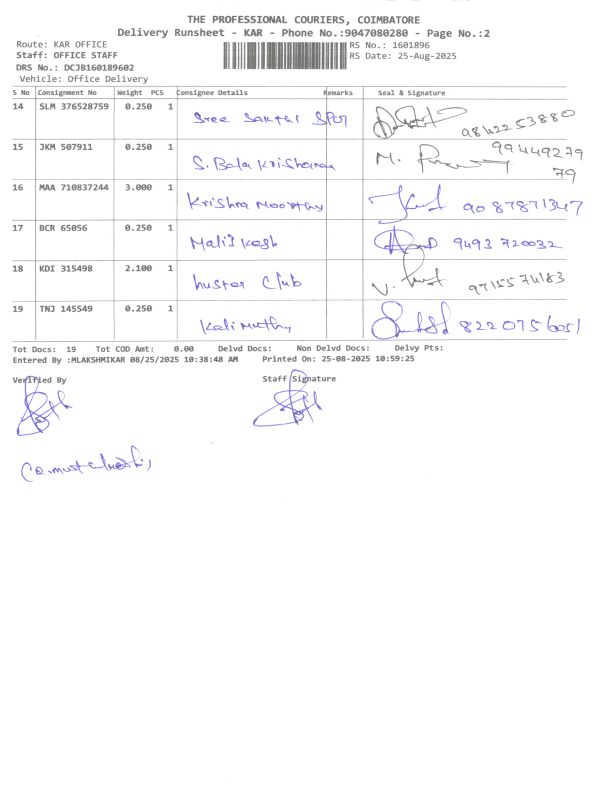 THE PROFESSIONAL COURIERS, COIMBATORE
Delivery Runsheet - KAR - Phone No.:9047080280 - Page No.:2
Route: KAR OFFICE RS No.: 1601896
Staff: OFFICE STAFF RS Date: 25-Aug-2025
DRS No.: DCJB160189602
Vehicle: Office Delivery
S No Consignment No Weight PCS Consignee Details Remarks Seal & Signature
14 SLM 376528759 0.250 1 Sree Sakthi SPOT 9842253880
15 JKM 507911 0.250 1 S. Bala Krishanan 9944927979
16 MAA 710837244 3.000 1 Krishna Moorthy 9087871347
17 BCR 65056 0.250 1 9493 720032
18 KDI 315498 2.100 1 Club 9715574183
19 TNJ 145549 0.250 1 Kali Muthy 8220756051
Tot Docs: 19 Tot COD Amt: 0.00 Delvd Docs: Non Delvd Docs: Delvy Pts:
Entered By :MLAKSHMIKAR 08/25/2025 10:38:48 AM Printed On: 25-08-2025 10:59:25
Verified By Staff Signature